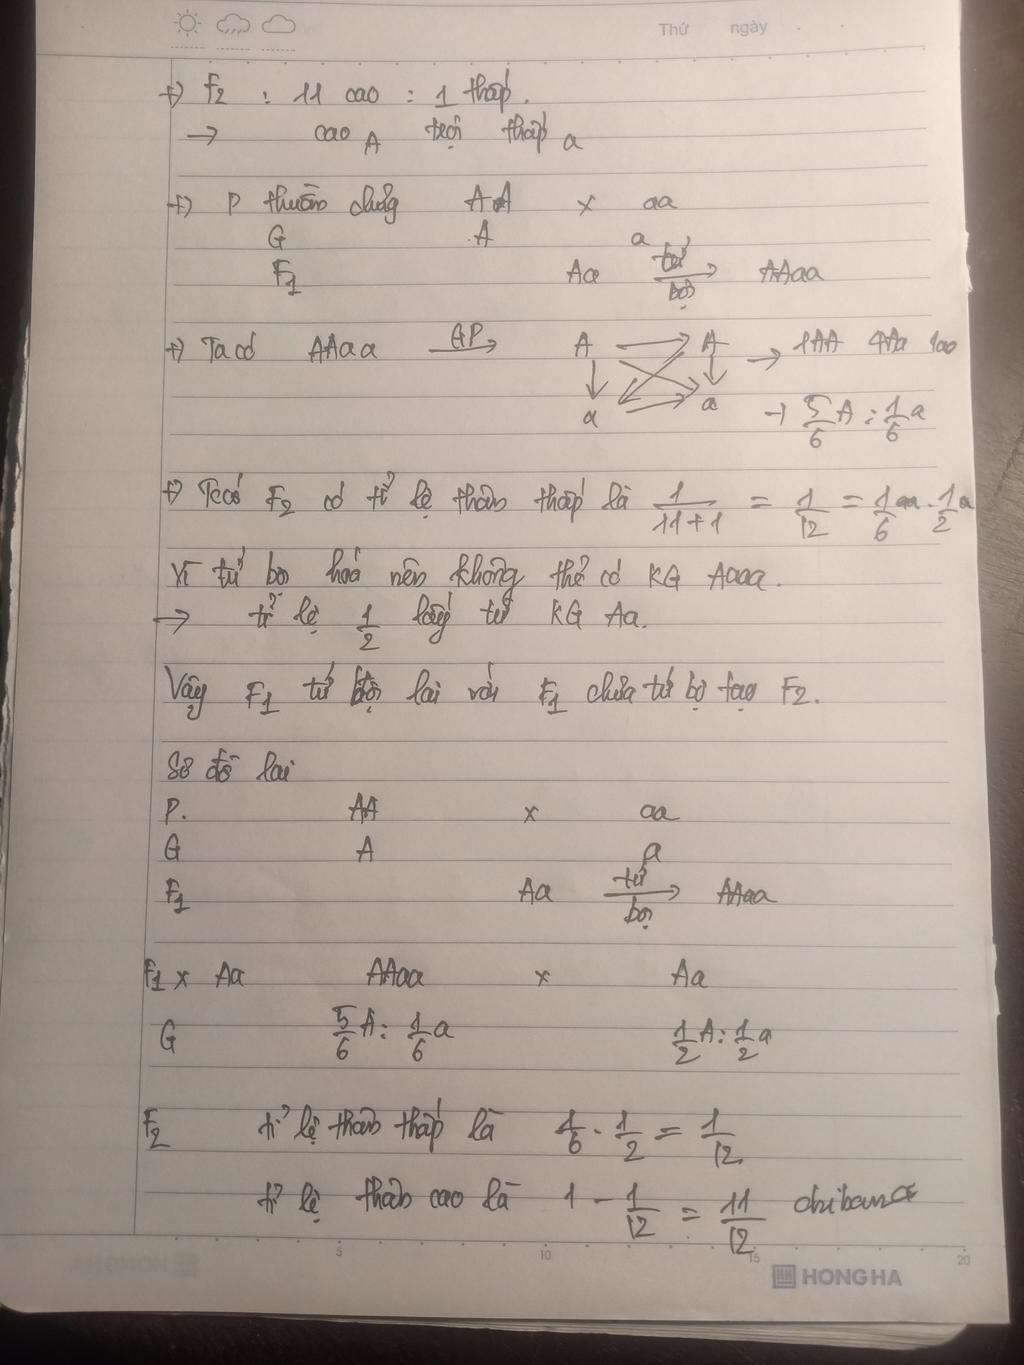 Thứ ngày
+) F2 : 11 cao : 1 thấp.
→ cao A trội thấp a
+) P thuần chủng AA x aa
G A a
F1 Aa tứ bội → AAaa
+) Ta có AAaa GP → A A → 1AA 4Aa 1aa
a a → 5/6 A : 1/6 a
+) Ta có F2 có tỉ lệ thân thấp là 1/(11+1) = 1/12 = 1/6 aa . 1/2 a
Vì tứ bội hoá nên không thể có KG Aaaa.
→ tỉ lệ 1/2 lấy từ KG Aa.
Vậy F1 tứ bội lai với F1 chưa tứ bộ tạo F2.
Sơ đồ lai
P. AA x aa
G A a
F1 Aa tứ bội → AAaa
F1 x Aa AAaa x Aa
G 5/6 A : 1/6 a 1/2 A : 1/2 a
F2 tỉ lệ thân thấp là 1/6 . 1/2 = 1/12
tỉ lệ thân cao là 1 - 1/12 = 11/12
5 10 15 20
HONG HA